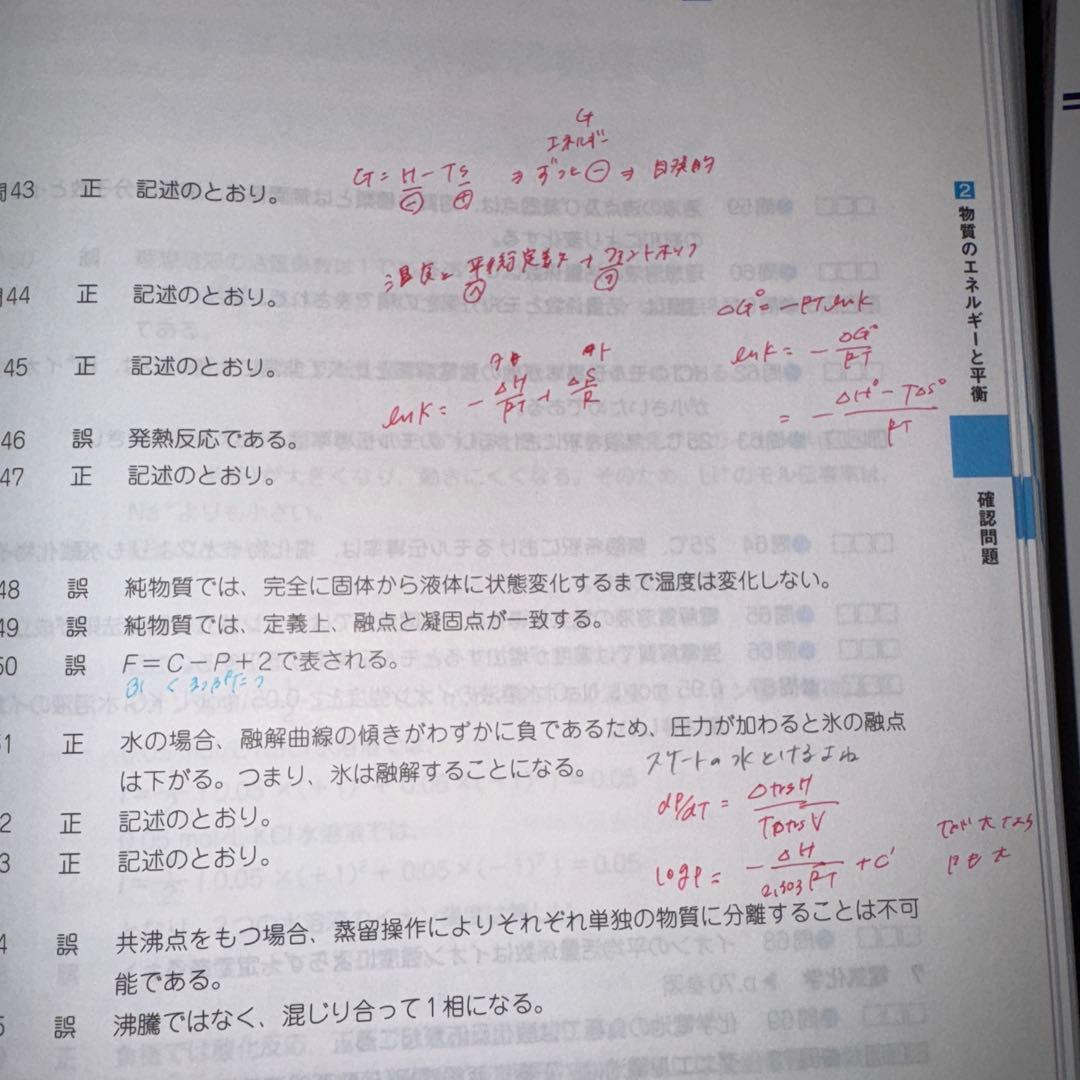 G
エネルギー
G = H − TS ⇒ ずっと ⊖ ⇒ 自発的
⊖ ⊕
問43 正 記述のとおり。
温度と平衡定数 → ファントホッフ
44 正 記述のとおり。
ΔG° = −RT ln K
45 正 記述のとおり。
ln K = − ΔH/RT + ΔS/R
ln K = − ΔG°/RT
= − ΔH° − TΔS°/RT
46 誤 発熱反応である。
47 正 記述のとおり。
48 誤 純物質では、完全に固体から液体に状態変化するまで温度は変化しない。
49 誤 純物質では、定義上、融点と凝固点が一致する。
50 誤 F＝C－P＋2で表される。
51 正 水の場合、融解曲線の傾きがわずかに負であるため、圧力が加わると氷の融点
は下がる。つまり、氷は融解することになる。
スケートの氷とけるよね
2 正 記述のとおり。
dP/dT = ΔtrsH/TΔtrsV
3 正 記述のとおり。
log P = − ΔH/2.303RT + C'
Tが大なら
Pも大
4 誤 共沸点をもつ場合、蒸留操作によりそれぞれ単独の物質に分離することは不可
能である。
5 誤 沸騰ではなく、混じり合って1相になる。
2 物質のエネルギーと平衡
確認問題